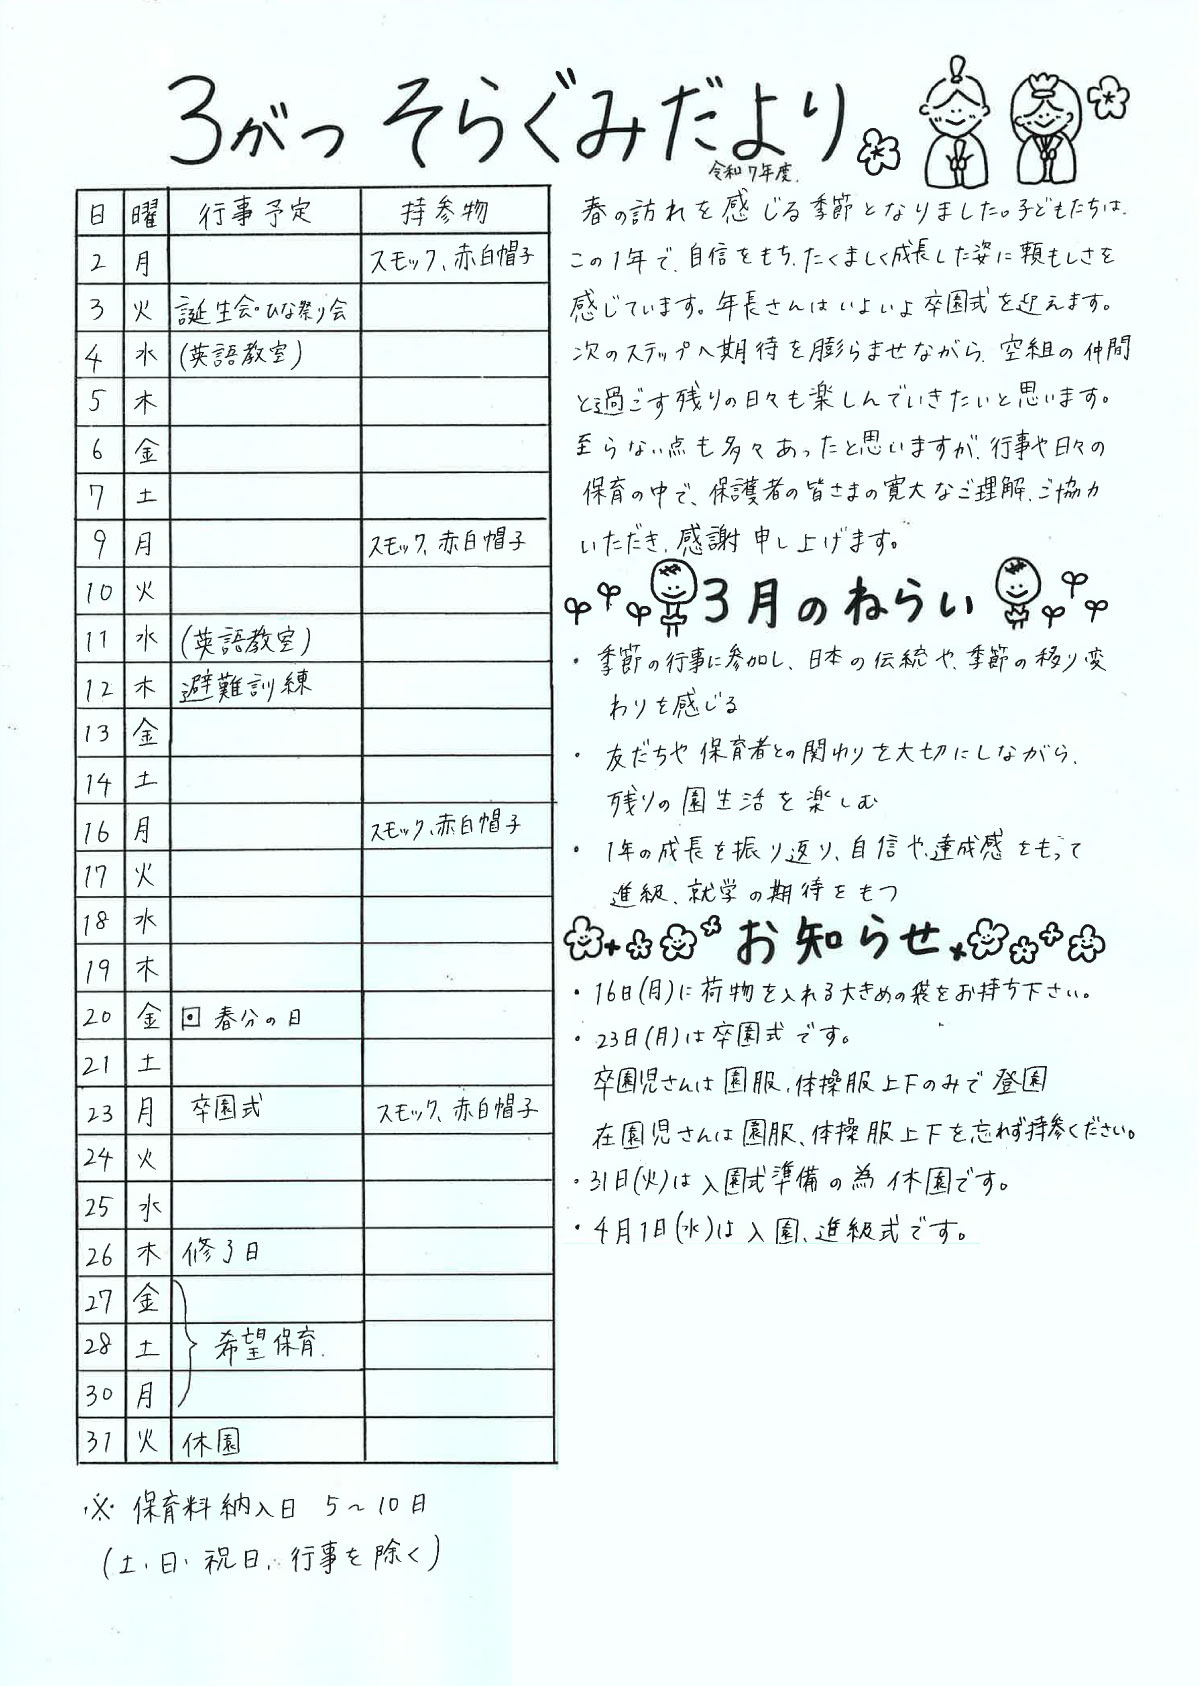 3がつ そらぐみだより
令和7年度.
日 曜 行事予定 持参物
2 月 スモック、赤白帽子
3 火 誕生会・ひな祭り会
4 水 (英語教室)
5 木
6 金
7 土
9 月 スモック、赤白帽子
10 火
11 水 (英語教室)
12 木 避難訓練
13 金
14 土
16 月 スモック、赤白帽子
17 火
18 水
19 木
20 金 回 春分の日
21 土
23 月 卒園式 スモック、赤白帽子
24 火
25 水
26 木 修了日
27 金
28 土 希望保育.
30 月
31 火 休園
※ 保育料納入日 5～10日
(土・日・祝日、行事を除く)
春の訪れを感じる季節となりました。子どもたちは、
この1年で、自信をもち、たくましく成長した姿に頼もしさを
感じています。年長さんはいよいよ卒園式を迎えます。
次のステップへ期待を膨らませながら、空組の仲間
と過ごす残りの日々も楽しんでいきたいと思います。
至らない点も多々あったと思いますが、行事や日々の
保育の中で、保護者の皆さまの寛大なご理解、ご協力
いただき、感謝申し上げます。
3月のねらい
・季節の行事に参加し、日本の伝統や、季節の移り変
わりを感じる
・友だちや保育者との関わりを大切にしながら、
残りの園生活を楽しむ
・1年の成長を振り返り、自信や、達成感をもって
進級、就学の期待をもつ
お知らせ
・16日(月)に荷物を入れる大きめの袋をお持ち下さい。
・23日(月)は卒園式です。
卒園児さんは園服、体操服上下のみで登園
在園児さんは園服、体操服上下を忘れず持参ください。
・31日(火)は入園式準備の為休園です。
・4月1日(水)は入園、進級式です。